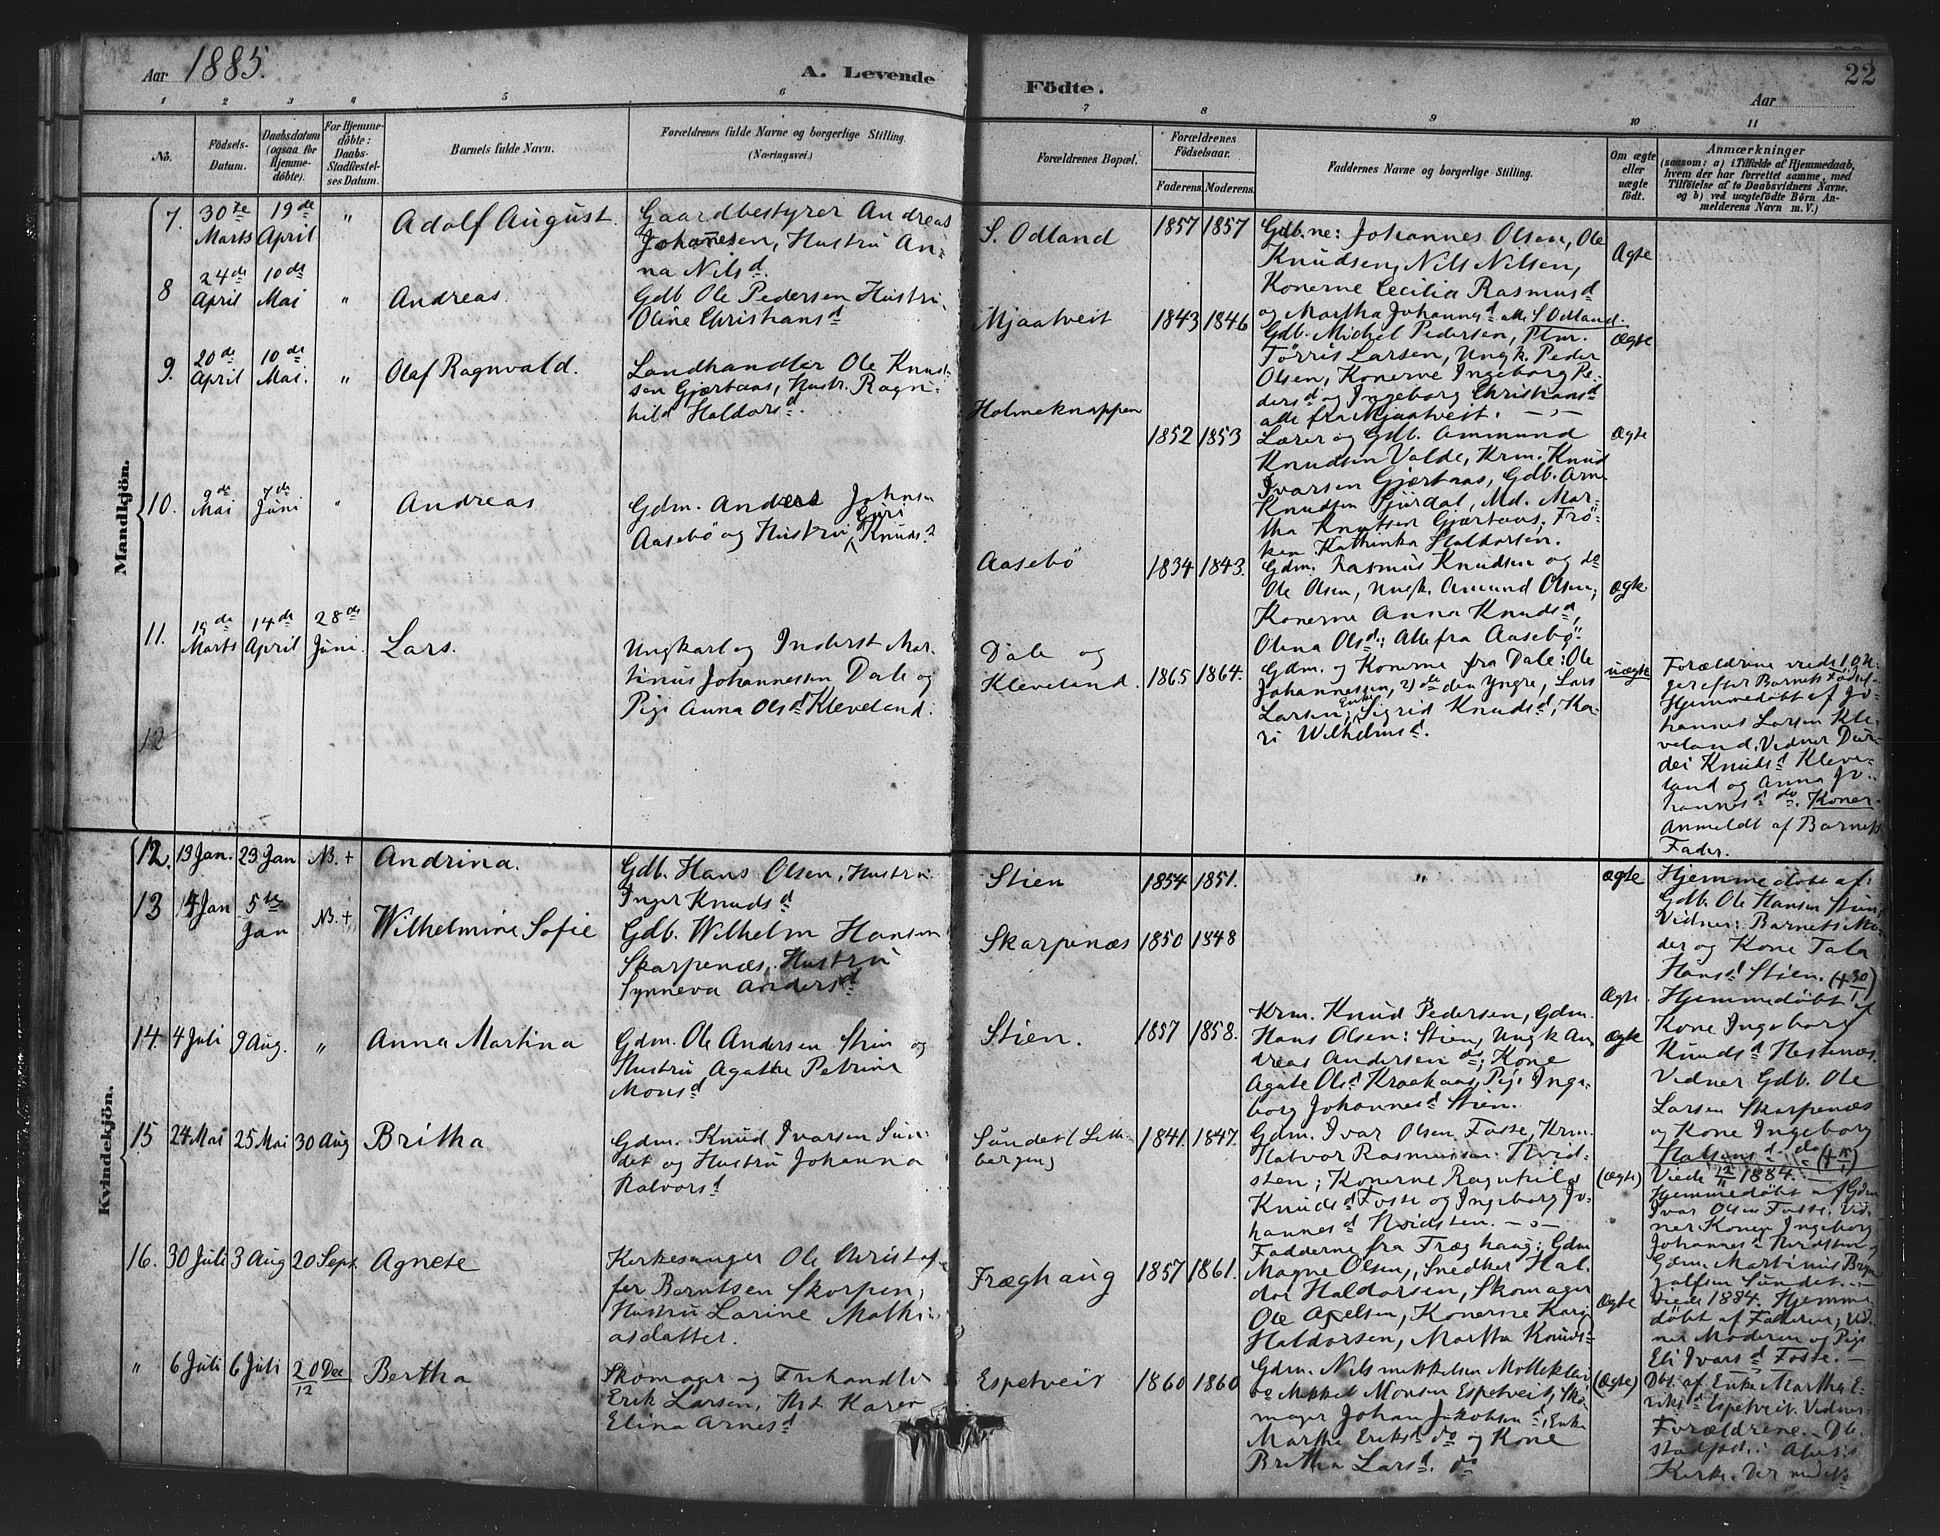 Aar 1885.
A. Levende
Födte.
22
Aar
1 2 3 4 5 6
7 8 9 10 11
No.
Födsels-Datum.
Daabsdatum (ogsaa for Hjemmedöbte).
For Hjemmedöbte: Daabs-Stadfæstelses Datum.
Barnets fulde Navn.
Forældrenes fulde Navne og borgerlige Stilling.
(Næringsvei.)
Forældrenes Bopæl.
Forældrenes Födselsaar.
Faderens. Moderens.
Faddernes Navne og borgerlige Stilling.
Om ægte eller uægte födt.
Anmærkninger
(saasom: a) i Tilfælde af Hjemmedaab,
hvem der har forrettet samme, med
Tilföielse af to Daabsvidners Navne.
og b) ved uægtefödte Börn An-
melderens Navn m. V.)
Mandkjön.
7. 30te Marts 19de April " Adolf August
Gaardbestyrer Andreas
Johannesen, Hustru An-
na Nilsd.
S. Odland 1857 1857
Gdb.ne: Johannes Olsen, Ole
Knudsen, Nils Nilsen,
Konerne Cecilia Rasmusd
og Martha Johannesd alle S. Odland.
Ægte
8 24de April 10de Mai " Andreas.
Gdb. Ole Pedersen Hustru
Oline Christiansd
Mjaatveit 1843 1846
Gdb. Michel Pedersen, Ptm.
Törris Larsen, Ungk. Peder
Olsen, Konerne Ingeborg Pe-
dersd og Ingeborg Christiansd
alle fra Mjaatveit.
Ægte
9. 20de April 10de Mai. " Olaf Ragnvald.
Landhandler Ole Knud-
sen Gjertaas, Hustr. Ragn-
hild Haldorsd.
Holmeknappen 1852 1853
Lærer og Gdb. Ammund
Knudsen Valde, Krm. Knud
Ivarsen Gjertaas, Gdb. Arne
Knudsen Fjordal, Md. Mar-
tha Knutsen Gjertaas, Frö-
ken Kathinka Haldorsen.
Ægte
10. 9de Mai 7de Juni " Andreas
Gdm. Anders Johnsen
Aasebö og Hustru Guri Knudsd
Aasebö 1834 1843.
Gdm. Rasmus Knudsen og do
Ole Olsen, Ungk. Amund Olsen,
Konerne Anna Knudsd,
Olina Olsd: Alle fra Aasebö.
Ægte
11. Marts 14de April 28de Juni. Lars.
Ungkarl og Inderst Mar-
tinius Johannessen Dale og
Pige Anna Olsd Kleveland.
Dale og
Kleveland. 1865 1864.
Gdm. og Konerne fra Dale: Ole
Johannessen, 2) den Yngre, Lars
Larsen, Enke Sigrid Knudsd, Ka-
ri Wilhelmsd.
uægte
Forældrene viede 10 U-
ger efter Barnets Födsel.
Hjemmedöbt af Jo-
hannes Larsen Kle-
veland, Vidner Dor-
dei Knudsd Kleve-
land og Anna Jo-
hannesd do. Koner.
Anmeldt af Barnets
Fader.
12
Kvindekjön.
12. 13 Jan. 23 Jan N.B. + Andrina.
Gdb. Hans Olsen, Hustru
Inger Knudsd
Stien 1854 1851. "
ægte
Hjemmedöbt af
Gdb. Ole Hansen Stien,
Vidner: Barnets Mo-
der og Kone Tala
Hansd Stien. (+ 30/1)
13 Jan 5te Jan N.B. + Wilhelmine Sofie
Gdb. Wilhelm Hansen
Skarpenæs, Hustru
Synneva Andersd
Skarpenæs 1850 1848
Ægte.
Hjemmedöbt af
Kone Ingeborg
Knudsd Hestenæs.
Vidner Gdb. Ole
Larsen Skarpenæs
og Kone Ingeborg
do
14. 4 Juli 9 Aug. " Anna Martina
Gdm. Ole Andersen Stien og
Hustru Agathe Petrine
Monsd
Stien. 1857 1858.
Krm. Knud Pedersen, Gdm.
Hans Olsen: Stien, Ungk An-
dreas Andersen do; Kone
Agate Olsd Kraakaas, Pige Inge-
borg Johannesd Stien.
Ægte
15 24 Mai 25 Mai 30 Aug Britha
Gdm. Knud Ivarsen Sun-
det og Hustru Johanna
Halvorsd
Sundet 1841. 1847.
Gdm. Ivar Olsen Fosse, Krm.
Halvor Rasmussen Hvid-
sten; Konerne Ragnhild
Knudsd Fosse og Ingeborg Jo-
hannesd Hvidsten.
(ægte)
Viede 1884.
Hjemmedöbt af Gdm
Ivar Olsen Fosse. Vid-
ner Konen Ingeborg
Johannesd Hvidsten og
Gdm. Martinus Bryn-
jolfsen Sundet.
16. 30 Juli 3 Aug 20 Sept. Agnete
Kirkesanger Ole Christof-
fer Berntsen Skorpen,
Hustru Larine Mathi-
asdatter.
Fræghaug 1857 1861.
Fadderne fra Fræghaug: Gdm
Magne Olsen, Snedker Hal-
dor Haldorsen, Skomager
Ole Axelsen, Konerne Kari
Haldorsen, Martha Knuds-
Ægte
Viede 1884. Hjemme-
döbt af Faderen, Vid-
ner Moderen og Pige
Eli Ivarsd Fosse.
" 6 Juli 6 Juli 20/12 Dec Bertha
Skomager og Frihandler
Erik Larsen, Hst Karen
Elina Arnesd
Espetveit 1860 1860
Gdm. Nils Mikkelsen Mölleklev
og Mikkel Monsen Espetveit, Sko-
mager Johan Jakobsen do, Enke
Martha Eriksd do og Kone
Britha Larsd. do
(Ægte)
Dbt. af Enke Martha E-
riksd Espetveit. Vidner:
Forældrene.
Kirke.